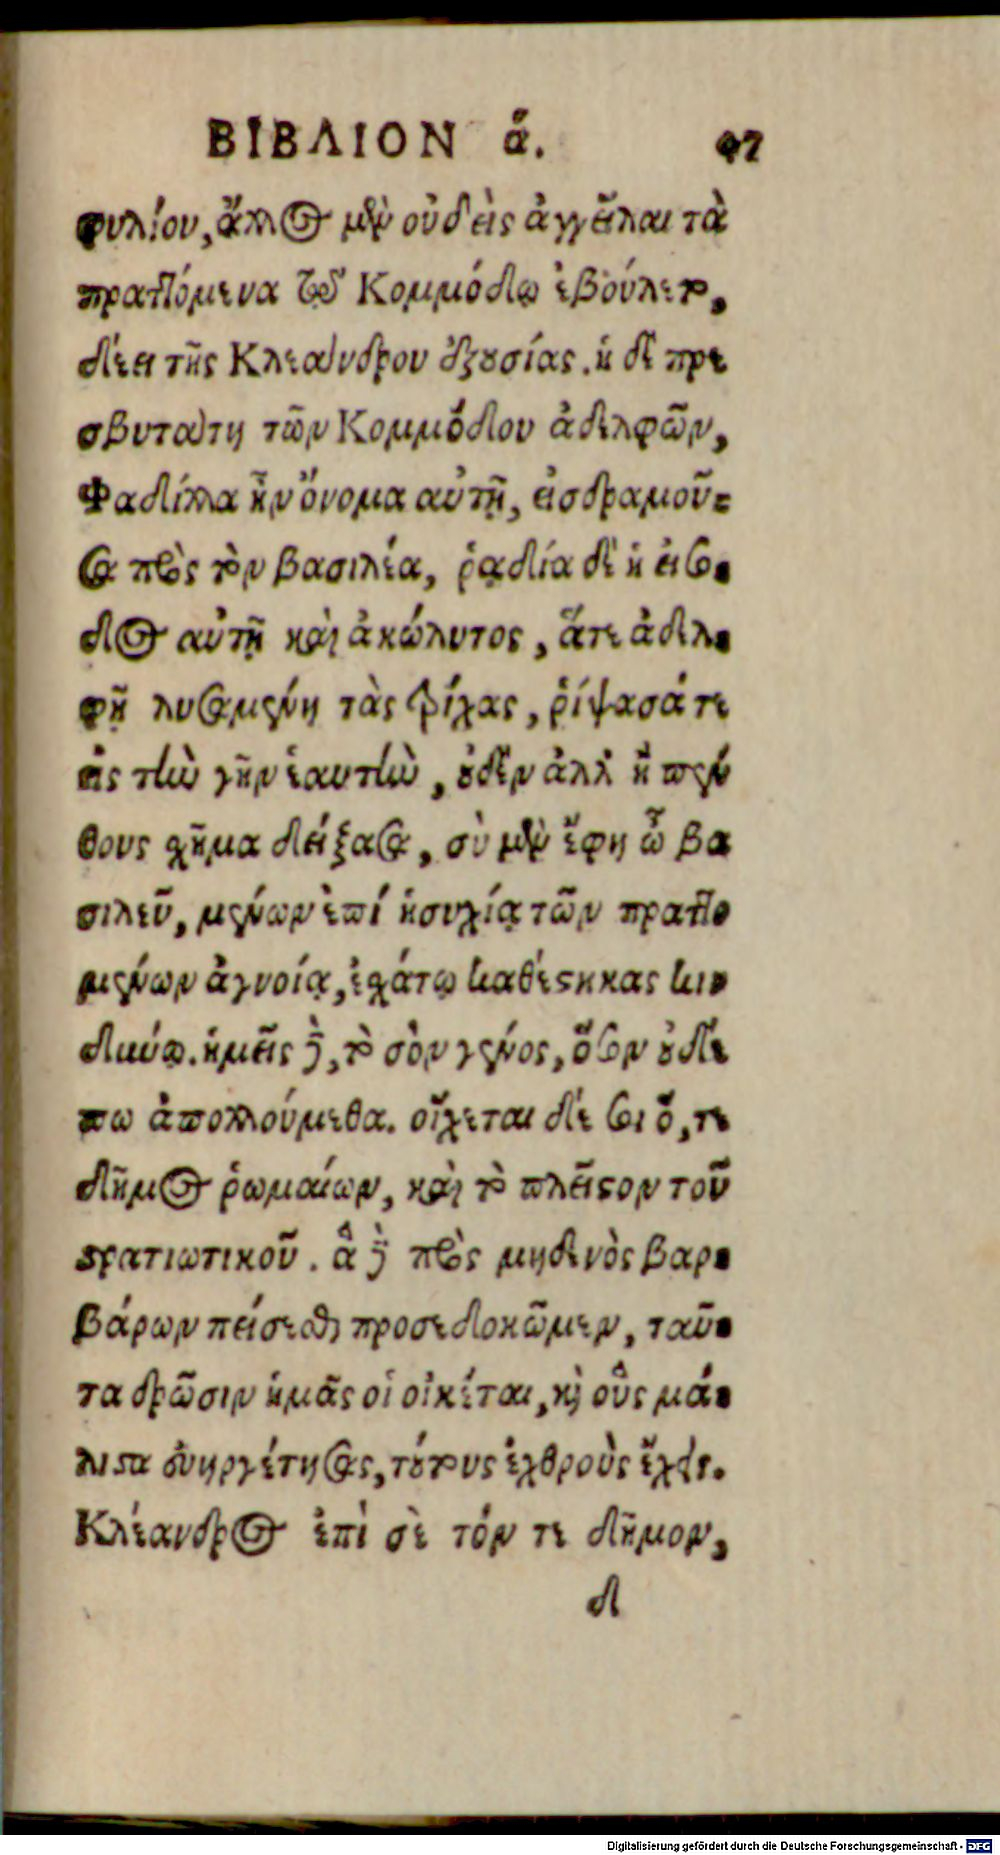 ΒΙΒΛΙΟΝ ά.
φυλίου, ἄλλος μὲν οὐδεὶς ἀγγεῖλαι τὰ
πραττόμενα τῷ Κομμόδῳ ἐβούλετο,
δέει τῆς Κλεάνδρου ἐξουσίας. ἡ δὲ πρε
σβυτάτη τῶν Κομμόδου ἀδελφῶν,
Φαδίλλα ἦν ὄνομα αὐτῇ, εἰσδραμοῦ-
σα πρὸς τὸν βασιλέα, ῥᾳδία δὲ ἡ εἴσο-
δος αὐτῇ καὶ ἀκώλυτος, ἅτε ἀδελ-
φῇ λυσαμένη τὰς τρίχας, ῥίψασά τε
εἰς τὴν γῆν ἑαυτὴν, οὐδὲν ἀλλ' ἢ πέν
θους χῆμα δείξασα, σὺ μὲν ἔφη ὦ βα
σιλεῦ, μένων ἐπί ἡσυχίᾳ τῶν πραττο
μένων ἀγνοίᾳ, ἐχάτῳ καθέστηκας κιν-
δύνῳ. ἡμεῖς δὲ, τὸ σὸν γένος, ὅσον οὐδέ
πω ἀπολλούμεθα. οἴχεται δέ σοι ὅ, τε
δῆμος ῥωμαίων, καὶ τὸ πλεῖστον τοῦ
στρατιωτικοῦ. ἃ δὲ πρὸς μηδενὸς βαρ-
βάρων πείσεσθαι προσεδοκῶμεν, ταῦ-
τα δρῶσιν ἡμᾶς οἱ οἰκέται, καὶ οὓς μά-
λιστα εὐηργέτησας, τούτους ἐχθροὺς ἔχεις.
Κλέανδρος ἐπὶ σὲ τόν τε δῆμον,
δ
Digitalisierung gefördert durch die Deutsche Forschungsgemeinschaft - DFG